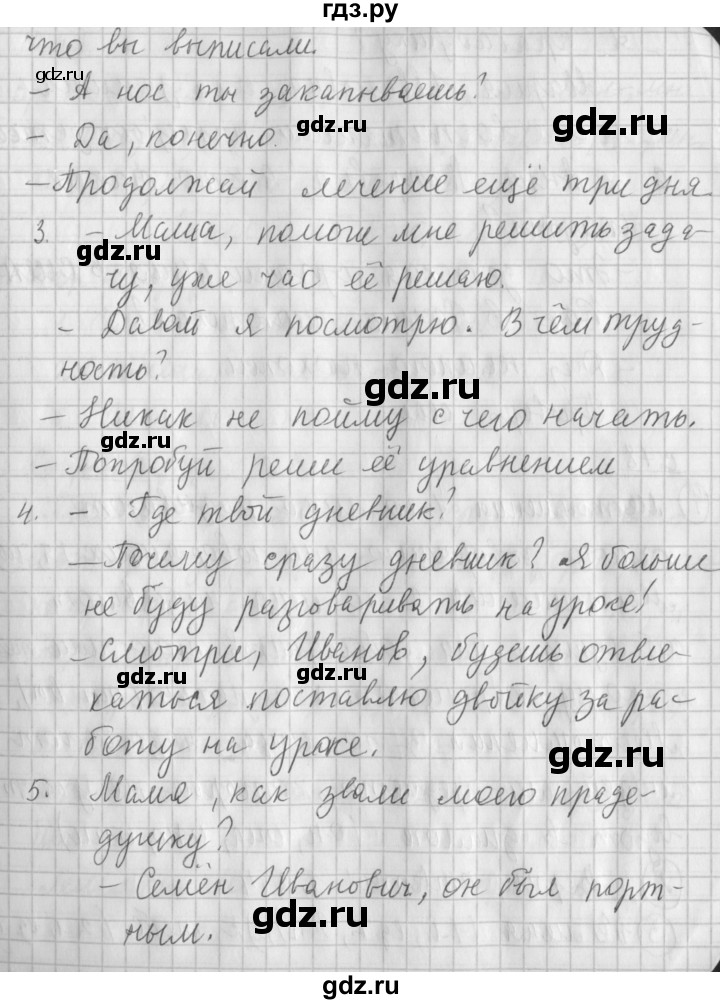 гдз.ру
что вы выписали.
gdz.ru
– А нос ты закапываешь?
gdz.ru
gdz.ru
– Да, понечно.
– Продолжай лечение ещё три дня.
3. – Маша, помоги мне решить зада-
gdz.ru
чу, уже час её решаю.
gdz.ru
– Давай я посмотрю. В чём труд-
ность?
gdz.ru
– Никак не пойму с чего начать.
gdz.ru
– Попробуй реши её уравнением
gdz.ru
4. – Где твой дневник?
– Почему сразу дневник? Я больше
gdz.ru
не буду разговаривать на уроке!
– Смотри, Иванов, будешь отвле-
gdz.ru
каться поставлю двойку за ра-
боту на уроке.
gdz.ru
5. Мама, как звали моего праде-
gdz.ru
душку?
– Семён Иванович, он был порт-
gdz.ru
gdz.ru
ным.
gdz.ru